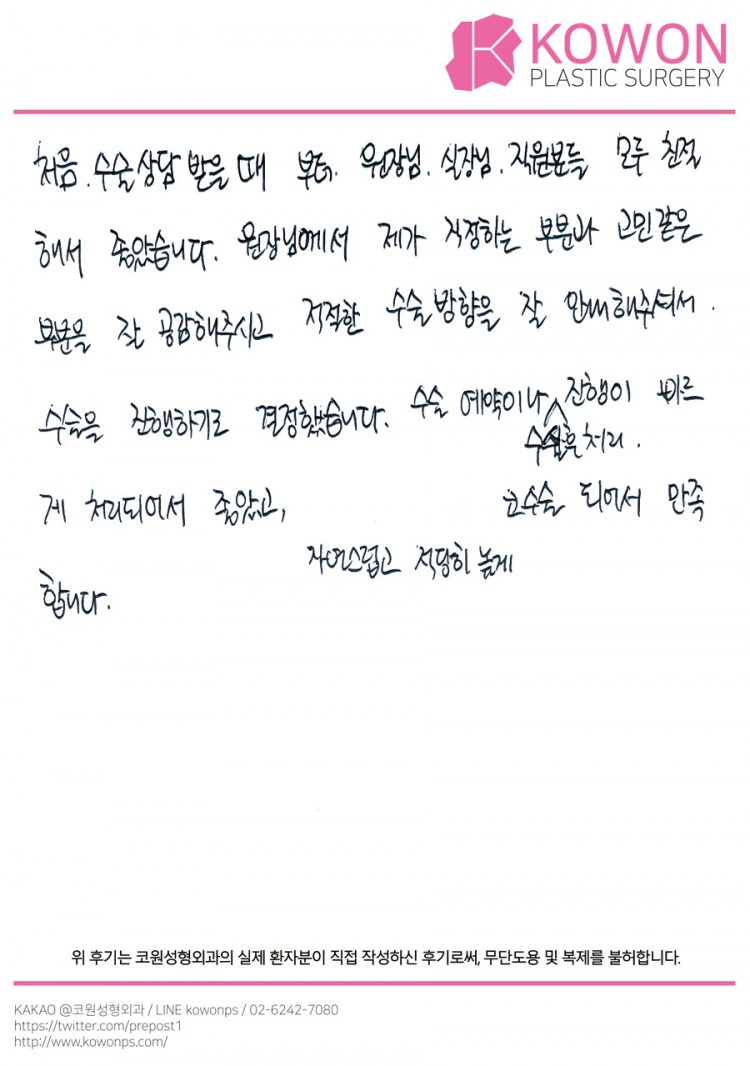 KOWON
PLASTIC SURGERY
처음. 수술상담 받을 때 부터. 원장님. 실장님. 직원분들 모두 친절
해서 좋았습니다. 원장님에서 제가 걱정하는 부분과 고민같은
부분을 잘 공감해주시고 적적한 수술방향을 잘 안내해주셔서.
수술을 진행하기로 결정했습니다. 수술 예약이나 진행이 빠르
수술후처리.
게 처리되어서 좋았고, 코수술 되어서 만족
자연스럽고 적당히 높게
합니다.
위 후기는 코원성형외과의 실제 환자분이 직접 작성하신 후기로써, 무단도용 및 복제를 불허합니다.
KAKAO @코원성형외과 / LINE kowonps / 02-6242-7080
https://twitter.com/prepost1
http://www.kowonps.com/